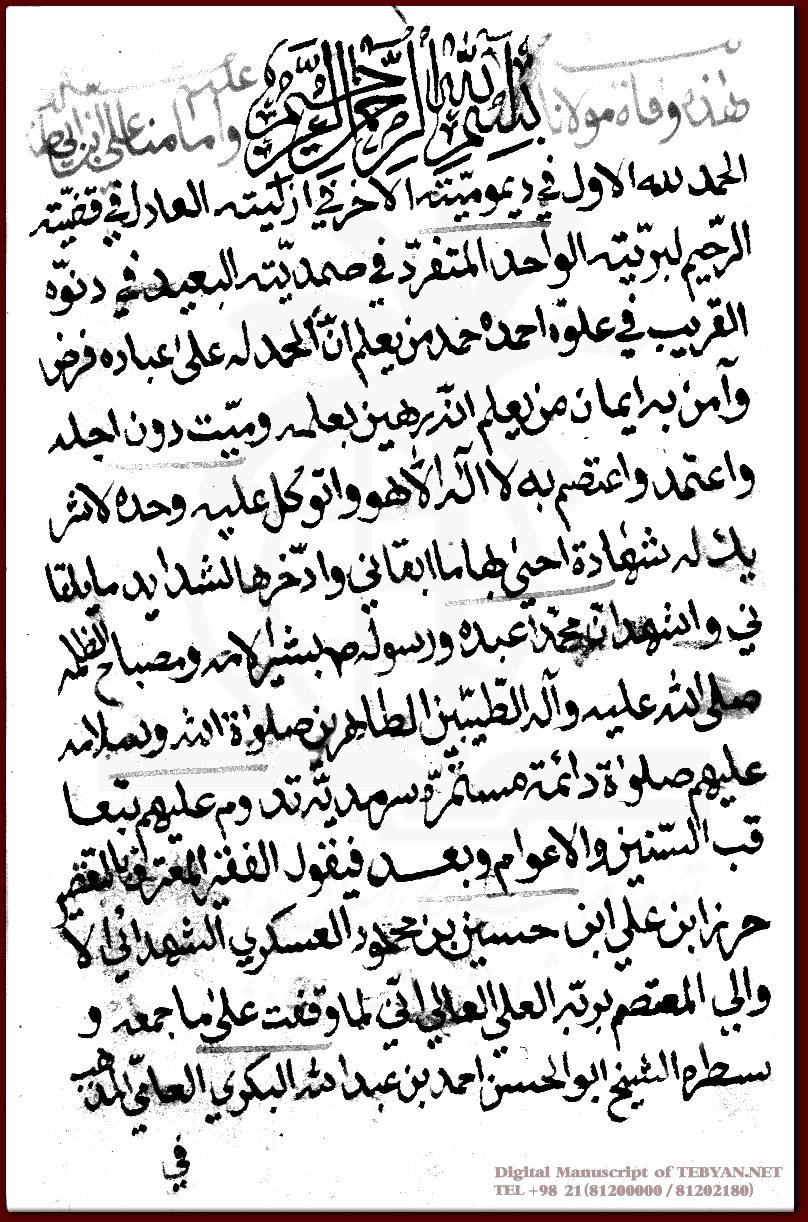 بسم الله الرحمن الرحيم
هذه وفاة مولانا وامامنا علي ابن ابي طا
عليه سلام
الحمد لله الاول في ديموميّته الاخر في ازليّته العادل في قضيّته
الرّحيم لبريّته الواحد المتفرّد في صمديّته البعيد في دنوّه
القريب في علوّه احمده حمد من يعلم انّ الحمد له على عباده فرض
وآمن به ايمان من يعلم انّه رهين بعلمه وميّت دون اجله
واعتمد واعتصم به لا اله الّا هو واتوكل عليه وحده لا شر
يك له شهادة احيى بها ما ابقاني وادّخرها لشدايد ما يلقا
ني واشهد انّ محمّداً عبده ورسوله ص بشير الامه ومصباح الظلمه
صلى الله عليه وآله الطّيبّين الطاهرين صلواة الله وسلامه
عليهم صلواة دائمة مستمرّة سرمديّة تدوم عليهم بتعا
قب السّنين والاعوام وبعد فيقول الفقير المعترف بالتقصير
حرز ابن علي ابن حسين بن محمود العسكري الشهدائي الا
والي المعتصم بربّه العلي العالي انّي لما وقفت على ما جمعه و
سطره الشيخ ابو الحسن احمد بن عبد الله البكري العامّي المذهب
في
Digital Manuscript of TEBYAN.NET
TEL +98 21 (81200000 / 81202180)